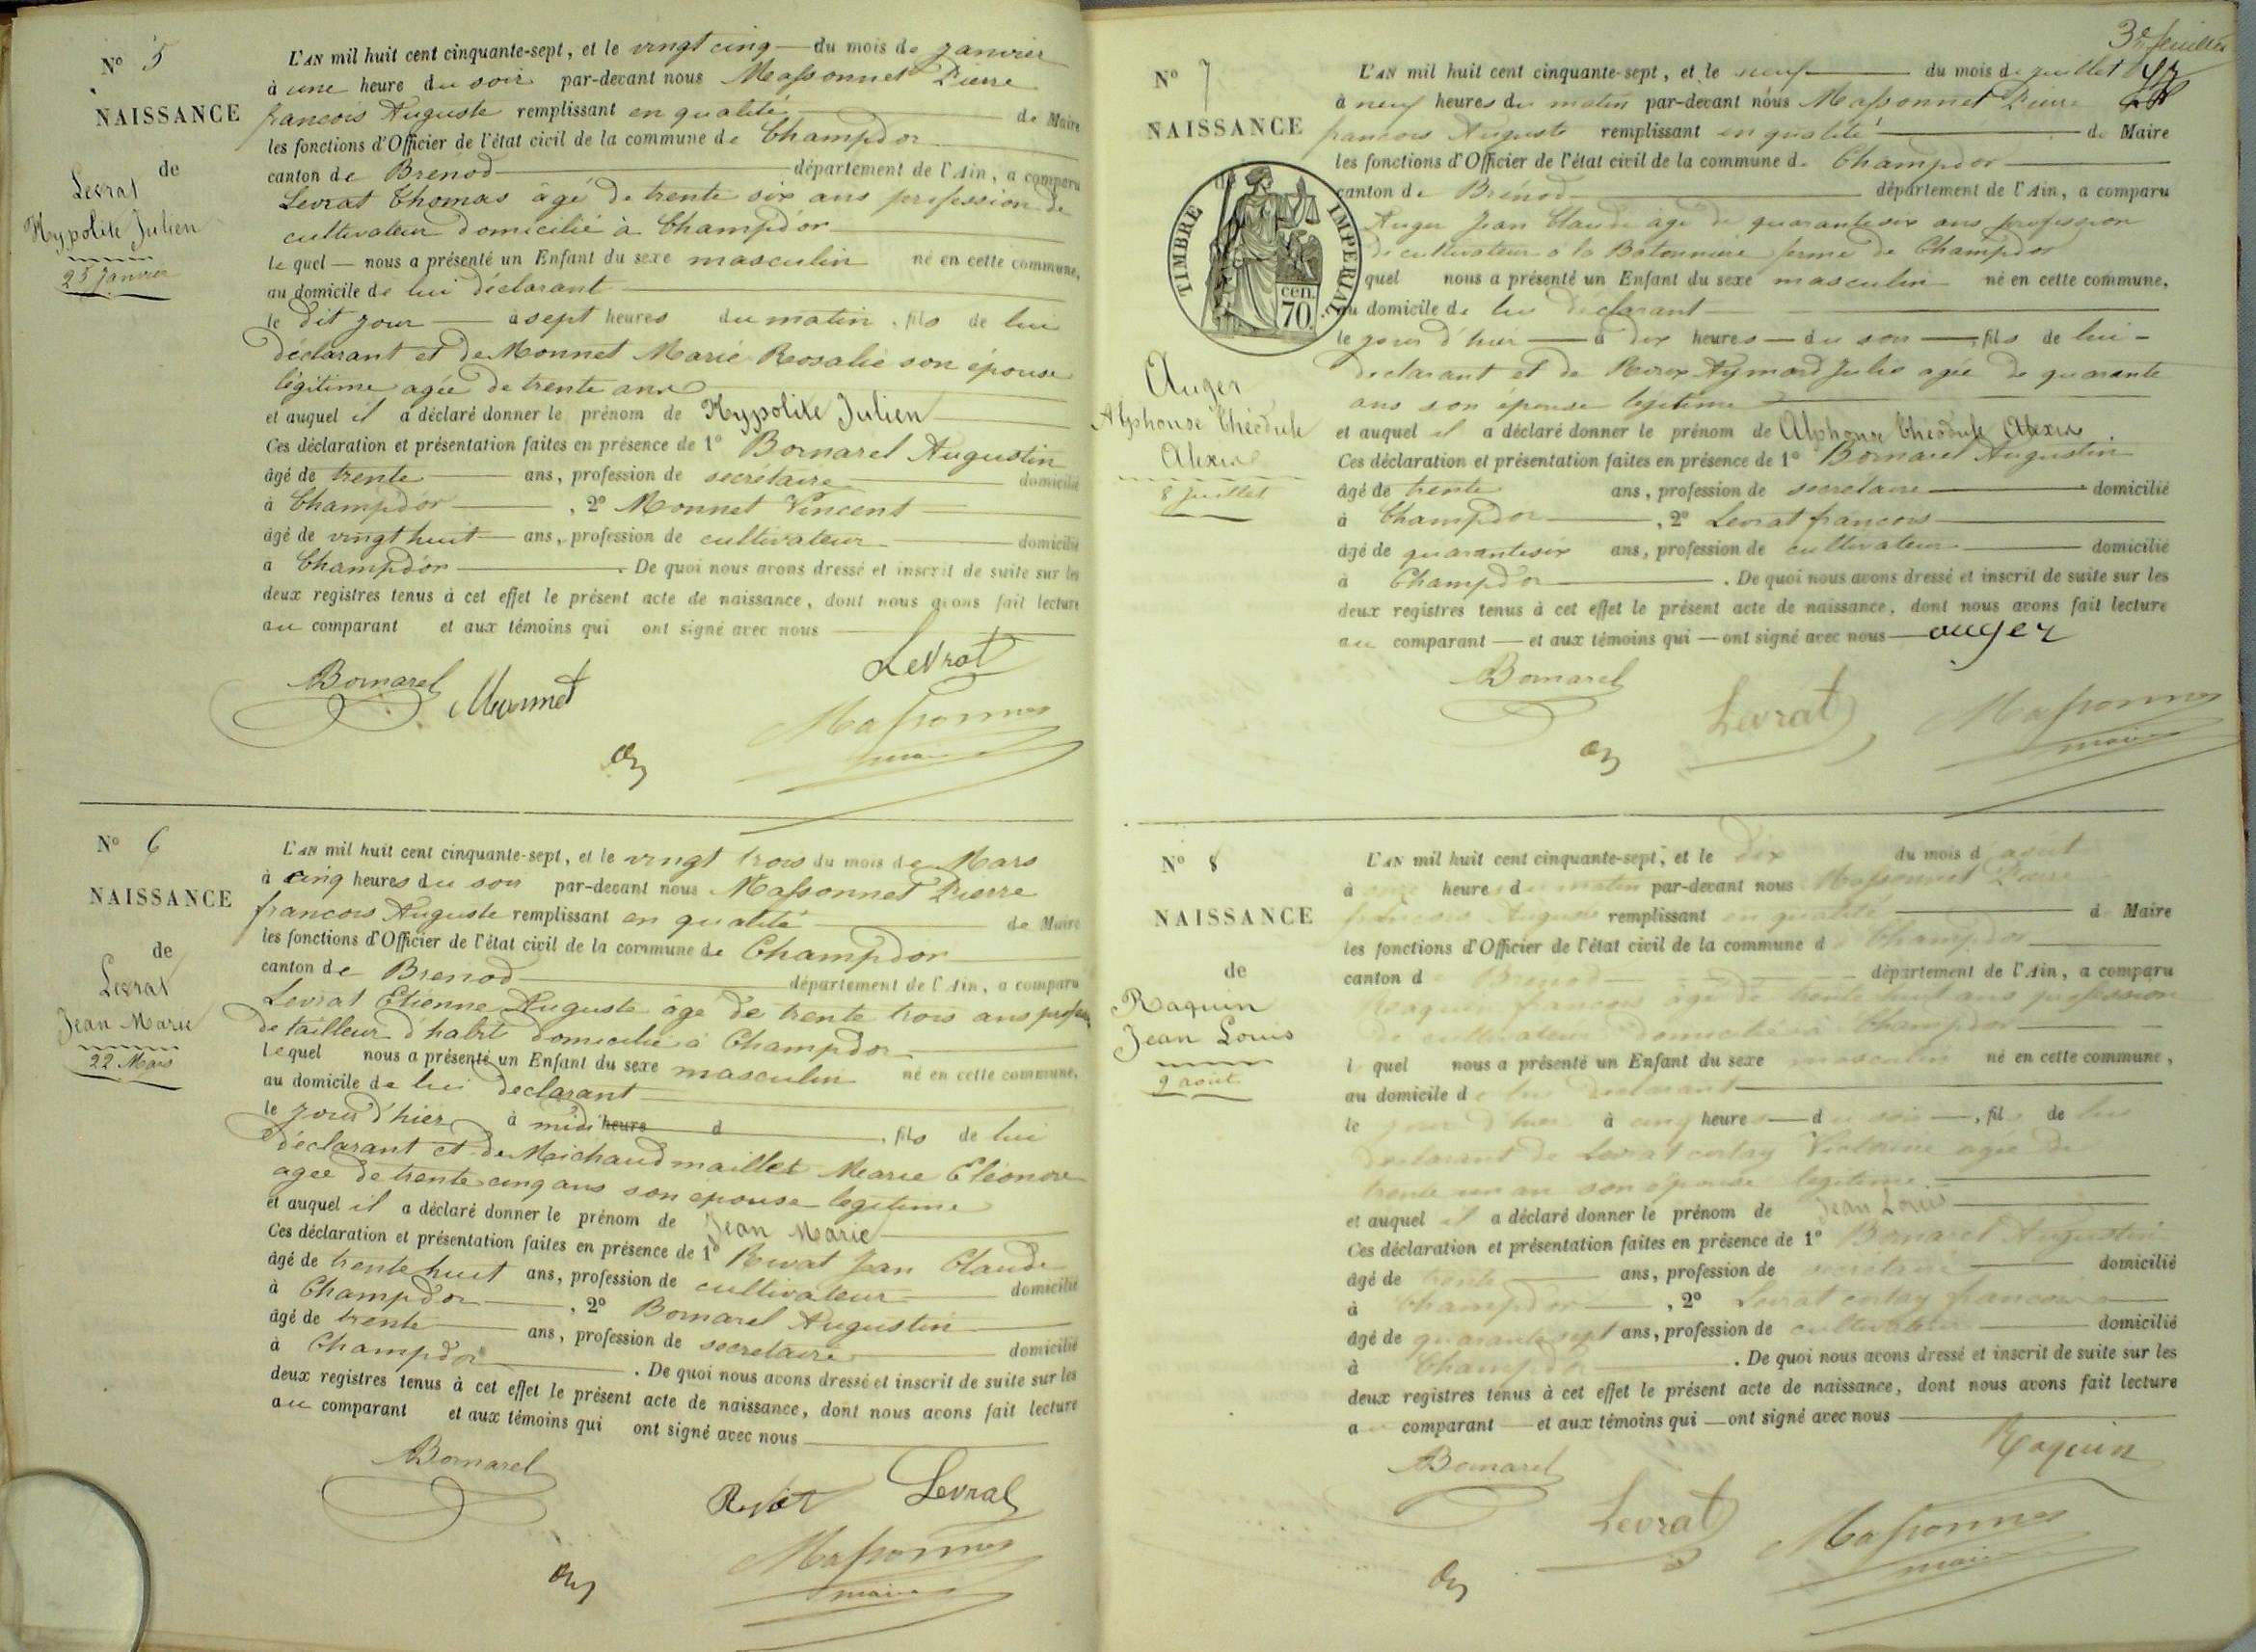 N° 5
NAISSANCE
de
Levrat
Hypolite Julien
25 Janvier
L'AN mil huit cent cinquante-sept, et le vingt cinq du mois de Janvier
à une heure du soir par-devant nous Massonnet Pierre
francois Auguste remplissant en qualité de Maire
les fonctions d'Officier de l'état civil de la commune de Champdor
canton de Brénod département de l'Ain, a comparu
Levrat Thomas âgé de trente six ans profession de
cultivateur domicilié à Champdor
lequel nous a présenté un Enfant du sexe masculin né en cette commune,
au domicile de lui déclarant
le dit jour à sept heures du matin, fils de lui
déclarant et de Monnet Marie Rosalie son épouse
légitime agée de trente ans
et auquel il a déclaré donner le prénom de Hypolite Julien
Ces déclaration et présentation faites en présence de 1° Bornarel Augustin
âgé de trente ans, profession de secrétaire domicilié
à Champdor, 2° Monnet Vincent
âgé de vingt huit ans, profession de cultivateur domicilié
à Champdor. De quoi nous avons dressé et inscrit de suite sur les
deux registres tenus à cet effet le présent acte de naissance, dont nous avons fait lecture
au comparant et aux témoins qui ont signé avec nous
Levrat
Bornarel Monnet
Massonnet
maire
N° 6
NAISSANCE
de
Levrat
Jean Marie
22 Mars
L'AN mil huit cent cinquante-sept, et le vingt trois du mois de Mars
à cinq heures du soir par-devant nous Massonnet Pierre
francois Auguste remplissant en qualité de Maire
les fonctions d'Officier de l'état civil de la commune de Champdor
canton de Brenod département de l'Ain, a comparu
Levrat Etienne Auguste âge de trente trois ans profession
de tailleur d'habit domicilié à Champdor
lequel nous a présenté un Enfant du sexe masculin né en cette commune,
au domicile de lui declarant
le jour d'hier à midi heure d, fils de lui
déclarant et de Michaud maillet Marie Eléonore
agée de trente cinq ans son épouse legitime
et auquel il a déclaré donner le prénom de Jean Marie
Ces déclaration et présentation faites en présence de 1° Rivat Jean Claude
âgé de trente huit ans, profession de cultivateur domicilié
à Champdor, 2° Bornarel Augustin
âgé de trente ans, profession de secretaire domicilié
à Champdor. De quoi nous avons dressé et inscrit de suite sur les
deux registres tenus à cet effet le présent acte de naissance, dont nous avons fait lecture
au comparant et aux témoins qui ont signé avec nous
Bornarel
Levrat
Massonnet
maire
3e feuillet
N° 7
NAISSANCE
TIMBRE IMPERIAL
cen.
70.
Auger
Alphonse Théodule
Alexis
8 Juillet
L'AN mil huit cent cinquante-sept, et le neuf du mois de juillet
à neuf heures du matin par-devant nous Massonnet Pierre
francois Auguste remplissant en qualité de Maire
les fonctions d'Officier de l'état civil de la commune de Champdor
canton de Brénod département de l'Ain, a comparu
Auger Jean Claude âgé de quarante six ans profession
de cultivateur à la Batonniere ferme de Champdor
quel nous a présenté un Enfant du sexe masculin né en cette commune,
au domicile de lui déclarant
le jour d'hier à dix heures du soir, fils de lui
declarant et de Roux Aymard Julie agée de quarante
ans son épouse legitime
et auquel il a déclaré donner le prénom de Alphonse Théodule Alexis
Ces déclaration et présentation faites en présence de 1° Bornarel Augustin
âgé de trente ans, profession de secretaire domicilié
à Champdor, 2° Levrat francois
âgé de quarante six ans, profession de cultivateur domicilié
à Champdor. De quoi nous avons dressé et inscrit de suite sur les
deux registres tenus à cet effet le présent acte de naissance, dont nous avons fait lecture
au comparant et aux témoins qui ont signé avec nous auger
Bornarel
Levrat Massonnet
maire
N° 8
NAISSANCE
de
Raquin
Jean Louis
9 aout
L'AN mil huit cent cinquante-sept, et le dix du mois d'aout
à onze heure du matin par-devant nous Massonnet Pierre
francois Auguste remplissant en qualité d Maire
les fonctions d'Officier de l'état civil de la commune d Champdor
canton d Brenod département de l'Ain, a comparu
Raquin francois âgé de trente huit ans profession
de cultivateur domicilié à Champdor
l quel nous a présenté un Enfant du sexe masculin né en cette commune,
au domicile de lui declarant
le jour d'hier à cinq heures du soir, fils de lui
declarant de Levrat Victorine agée de
trente un an son épouse legitime
et auquel il a déclaré donner le prénom de Jean Louis
Ces déclaration et présentation faites en présence de 1° Bornarel Augustin
âgé de trente ans, profession de secretaire domicilié
à Champdor, 2° Levrat francois
âgé de quarante sept ans, profession de cultivateur domicilié
à Champdor. De quoi nous avons dressé et inscrit de suite sur les
deux registres tenus à cet effet le présent acte de naissance, dont nous avons fait lecture
a comparant et aux témoins qui ont signé avec nous
Raquin
Bornarel
Levrat Massonnet
maire